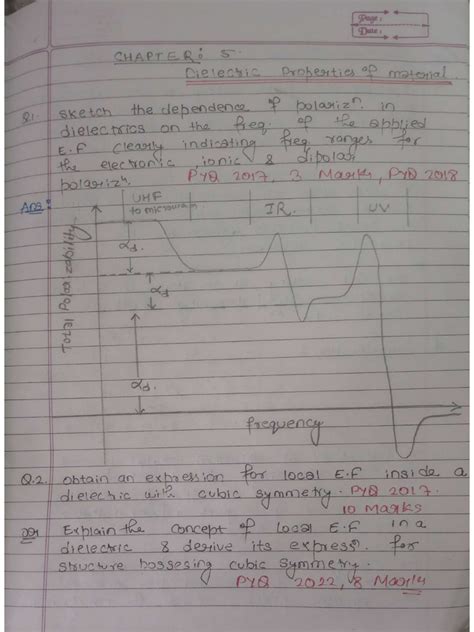 Page:
Date:
CHAPTER: 5.
Dielectric Properties of material.
Q1. Sketch the dependence of polarizⁿ. in
dielectrics on the freq. of the applied
E.F clearly indicating freq ranges for
the electronic, ionic & dipolar
polarizⁿ. PYQ 2017, 3 Marks, PYQ 2018
Ans:
UHF
to microwave
IR.
UV
Total Polarizability
αd.
αd
αd.
frequency
Q.2. obtain an expression for local E.F inside a
dielectric with cubic symmetry. PYQ 2017.
10 Marks
Explain the concept of local E.F in a
dielectric & derive its express. for
structure bossesing cubic symmetry.
PYQ 2022, 8 Marks